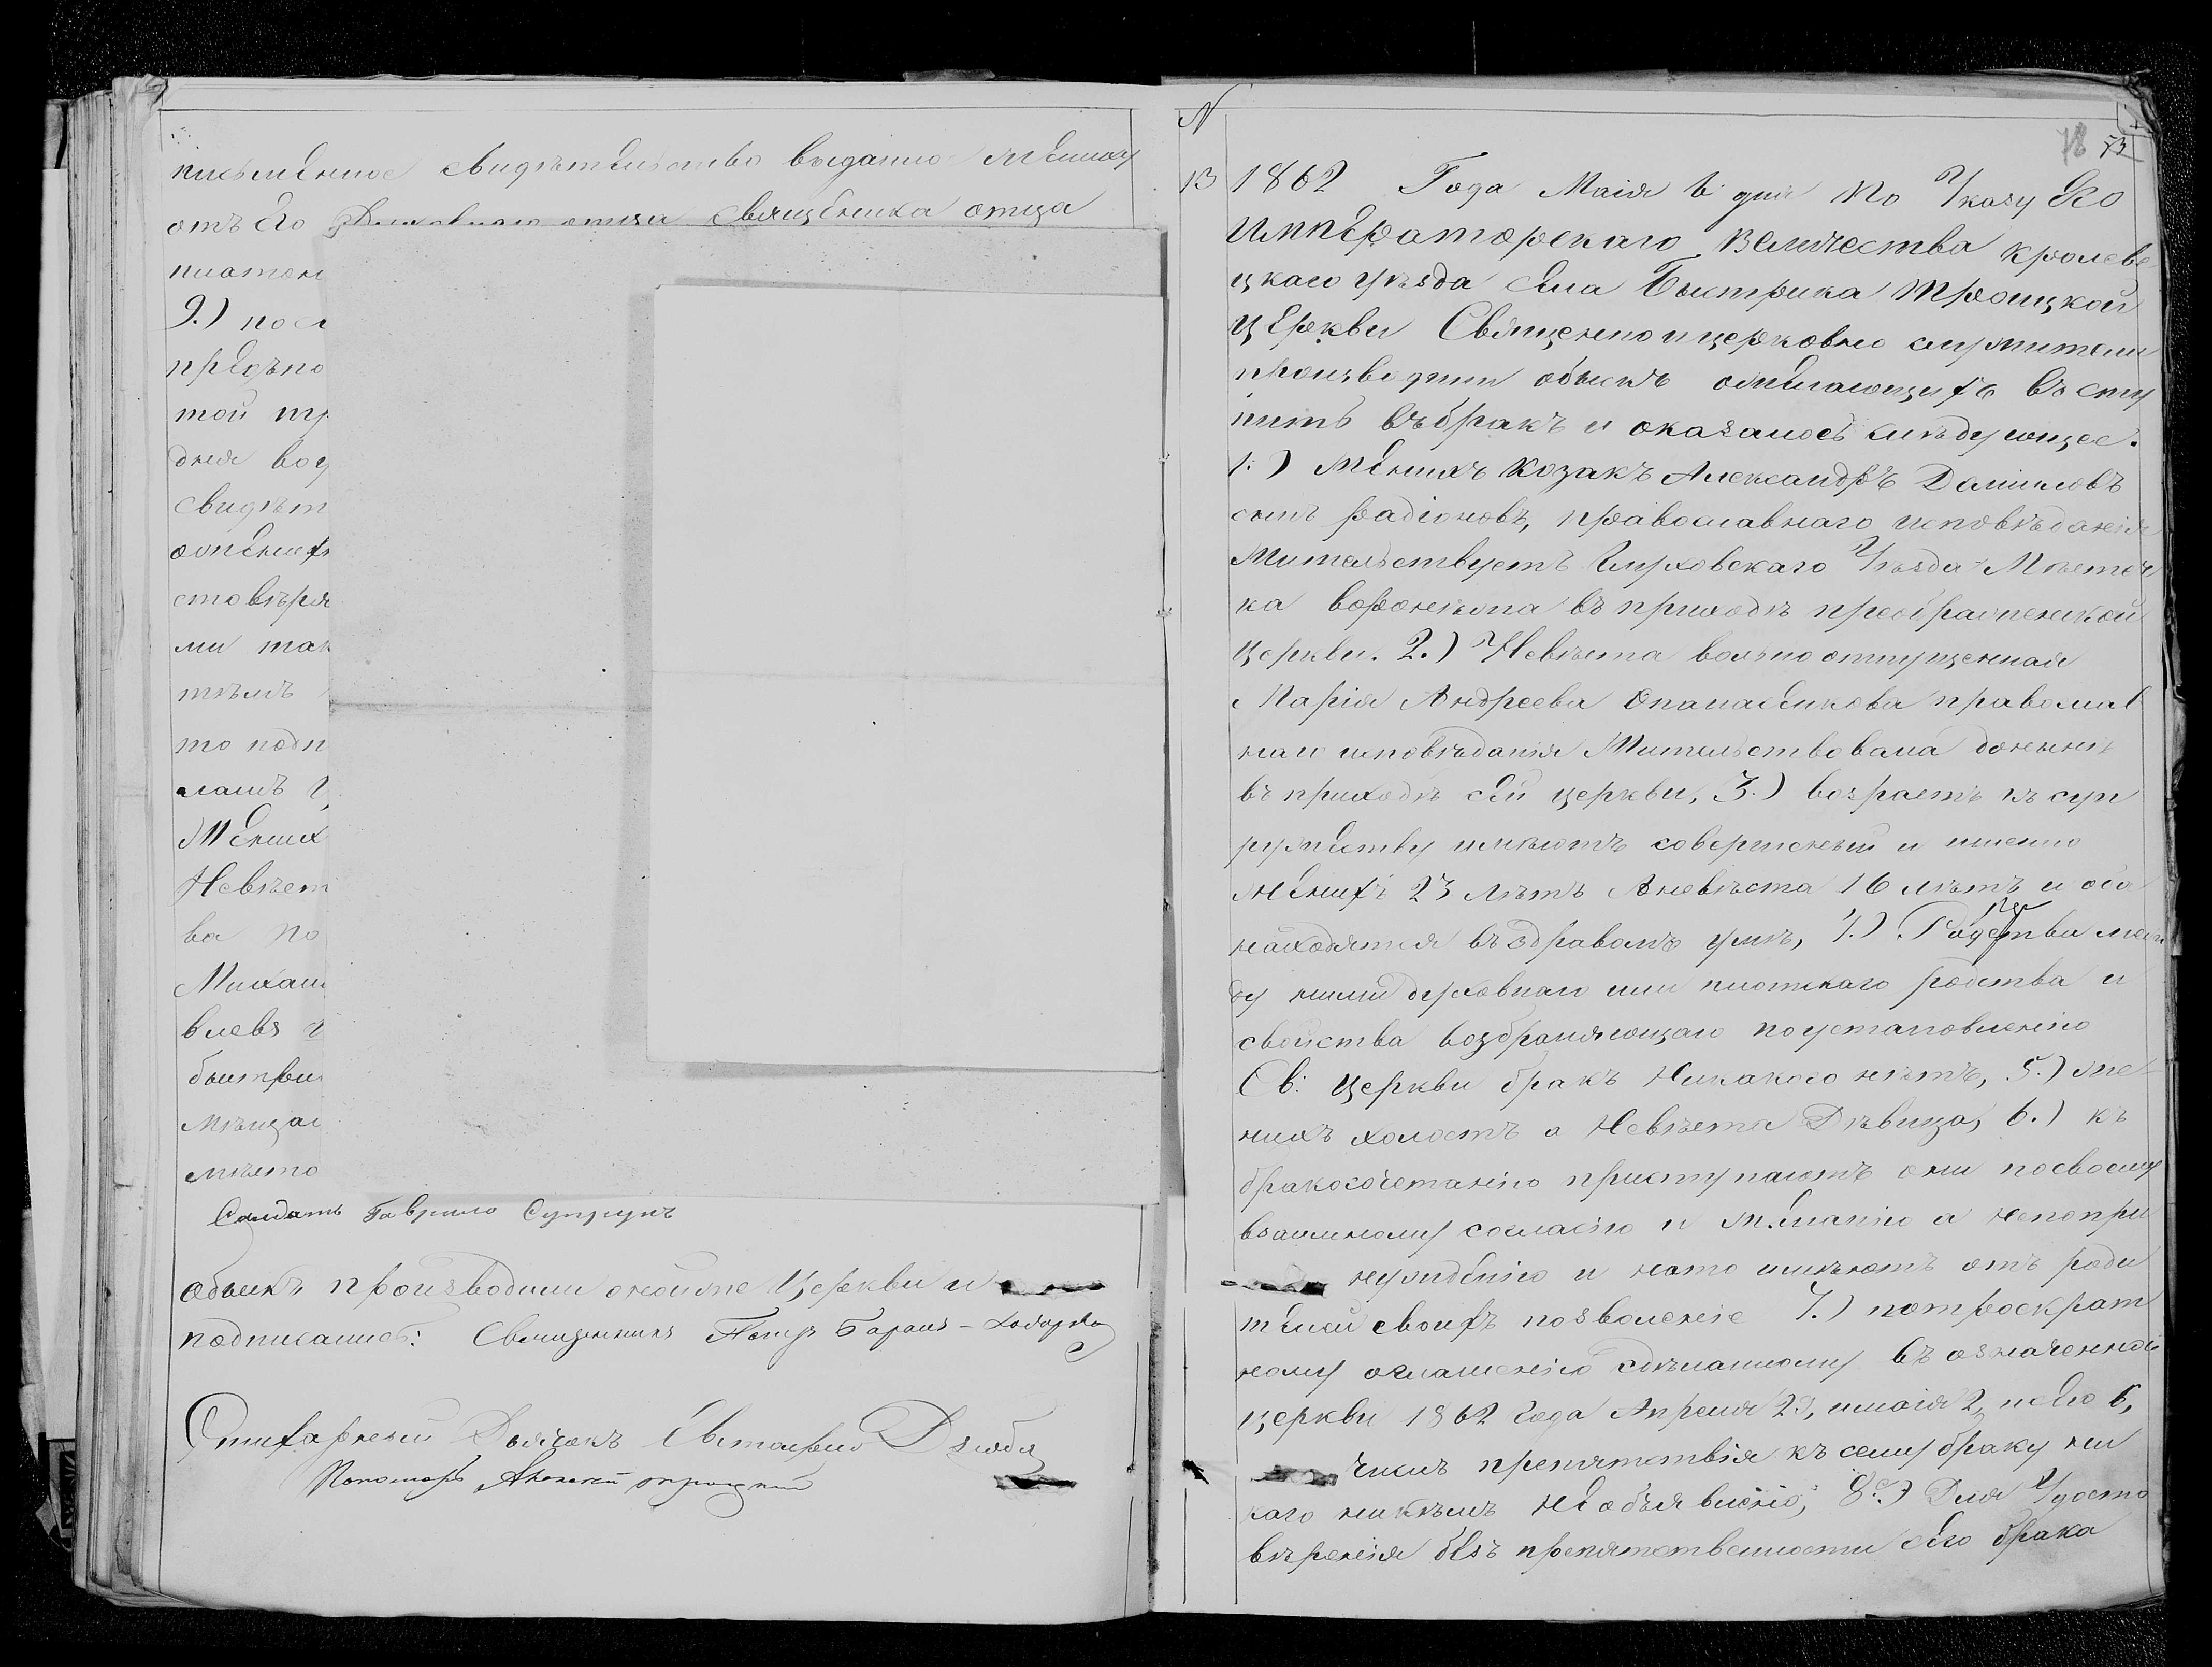 письменное свидѣтельство выдано жениху
отъ его Духовнаго отца священика отца
платон
9.) посл
предъпо
той тр
дня воу
свидѣт
ожених
стовѣря
ми так
тѣмъ
то подп
лашъ
Жених
Невѣст
ва по
Михаи
влевъ
быстри
мѣщан
мѣсто
Солдатъ Гаврило Супрунъ
обыскъ производили оной же Церкви и
подписались: Священникъ Петръ
Стихарный Дьячокъ Евстафий Дзюба
Пономарь Алексей троцкий
N
78 73
13 1862 Года Маія 6 дня По Указу Его
Императорскаго Величества кролеве
цкаго уѣзда села Быстрика Троицкой
церкви Священно и церковно служители
производили обыскъ ожелающихъ всту
пить въ бракъ и оказалось слѣдующее.
1.) Женихъ Козакъ Александръ Даниловъ
сынъ Радіоновъ, православнаго исповѣданія
Жительствуетъ Глуховскаго Уѣзда Мѣстеч
ка воронежа въ приходѣ преображенской
Церкви. 2.) Невѣста вольно отпущенная
Марія Андреева Опанасенкова православ
наго исповѣданія Жительствовала донынѣ
въ приходѣ сей церкви, 3.) возрастъ къ суп
ружеству имѣютъ совершеный и имено
женихъ 23 лѣтъ Аневѣста 16 лѣтъ и оба
находятся въ здравомъ умѣ, 4.) Родства меж
ду ними духовнаго или плотскаго родства и
свойства возбраняющаго поустановленію
Св: Церкви бракъ Никакого нѣтъ, 5.) же-
нихъ холостъ а Невѣста Дѣвица, 6.) къ
бракосочетанію приступаютъ они посвоему
взаимному согласію и желанію а непопри
нужденію и нато имѣютъ отъ роди
телей своихъ позволеніе 7.) потроекрат
ному оглашенію сдѣланному въ означенной
церкви 1862 Года Апреля 29, имаія 2, и 6,
препятствія къ сему браку ни
каго никѣмъ необъявлено; 8.) Для Удосто
вѣренія безъ препятственности сего брака